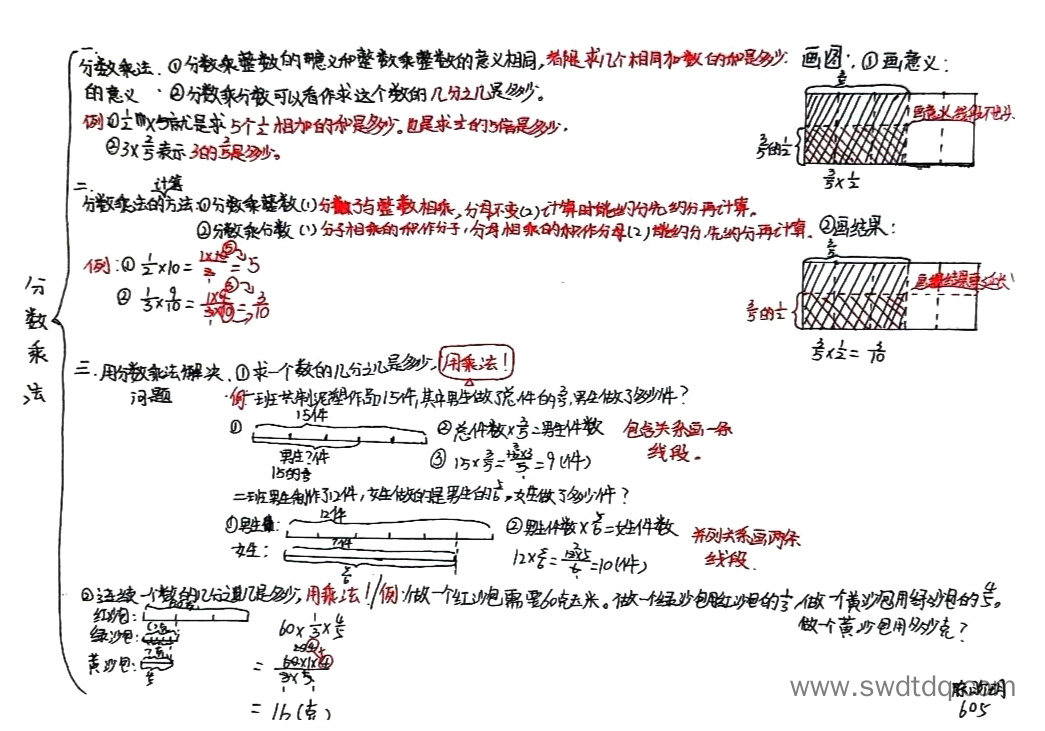 分数乘法
一.
分数乘法的意义
①分数乘整数的意义和整数乘整数的意义相同,都是求几个相同加数的和是多少.
②分数乘分数可以看作求这个数的几分之几是多少。
例:①1/2×5就是求5个1/2相加的和是多少。也是求1/2的5倍是多少.
②3×3/5表示3的3/5是多少。
画图:①画意义:
3/5
画意义,线段不包头
3/5的1/2
3/5×1/2
二.
计算
分数乘法的方法:①分数乘整数(1)分子与整数相乘,分母不变(2)计算时能约分先约分再计算。
②分数乘分数(1)分子相乘的积作分子,分母相乘的积作分母(2)能约分,先约分再计算.
②画结果:
3/5
3/5的1/2
3/5×1/2=3/10
例:①1/2×10=1×10/2=5
②1/3×9/10=1×9/3×10=3/10
三.用分数乘法解决问题
①求一个数的几分之几是多少,用乘法!
例:一班共制泥塑作品15件,其中男生做了总件的3/5,男生做了多少件?
① 15件
男生?件
15的3/5
②总件数×3/5=男生件数
③15×3/5=15×3/5=9(件)
包含关系画一条线段。
二班男生制作了12件,女生做的是男生的5/6。女生做了多少件?
①男生: 12件
女生: ?件
5/6
②男生件数×5/6=女生件数
12×5/6=12×5/6=10(件)
并列关系画两条线段.
②连续求一个数的几分之几是多少,用乘法!
例:做一个红沙包需要60克玉米。做一个绿沙包用红沙包的1/3,做一个黄沙包用绿沙包的4/5。
做一个黄沙包用多少克?
红沙包:
绿沙包:
黄沙包:
60×1/3×4/5
=60×1×4/3×5
=16(克)
www.swdtdq.com
605